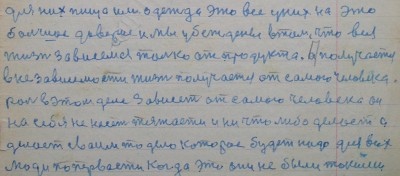 для них пища или одежда это все у них на это
большое доверие и мы убеждены в том, что вся
жизн зависемся толко от продукта. В получается
в независемости жизн получается от самого человека.
рол в этом деле зависет от самого человека он
на себя не несет тяжести и ни что либо делает а
делает своим то дело которое будет надо для всих
люди потеряасти когда это они не были такими